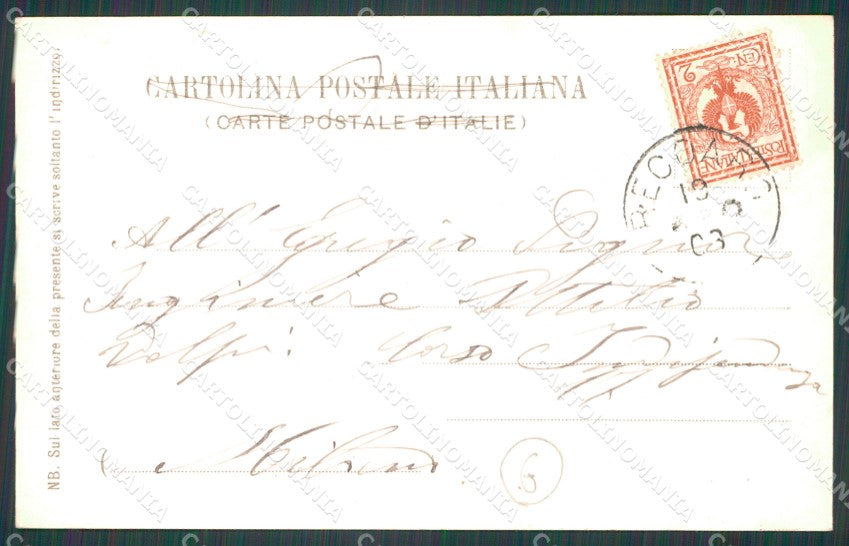 CARTOLINA POSTALE ITALIANA
(CARTE POSTALE D'ITALIE)
NB. Sul lato anteriore della presente si scrive soltanto l'indirizzo.
POSTE ITALIANE
CEN. 2
RECOARO
19
8
03
All' Egregio Signor
Ingniere Attilio
Volpi. Corso
Milano
6
CARTOLINOMANIA